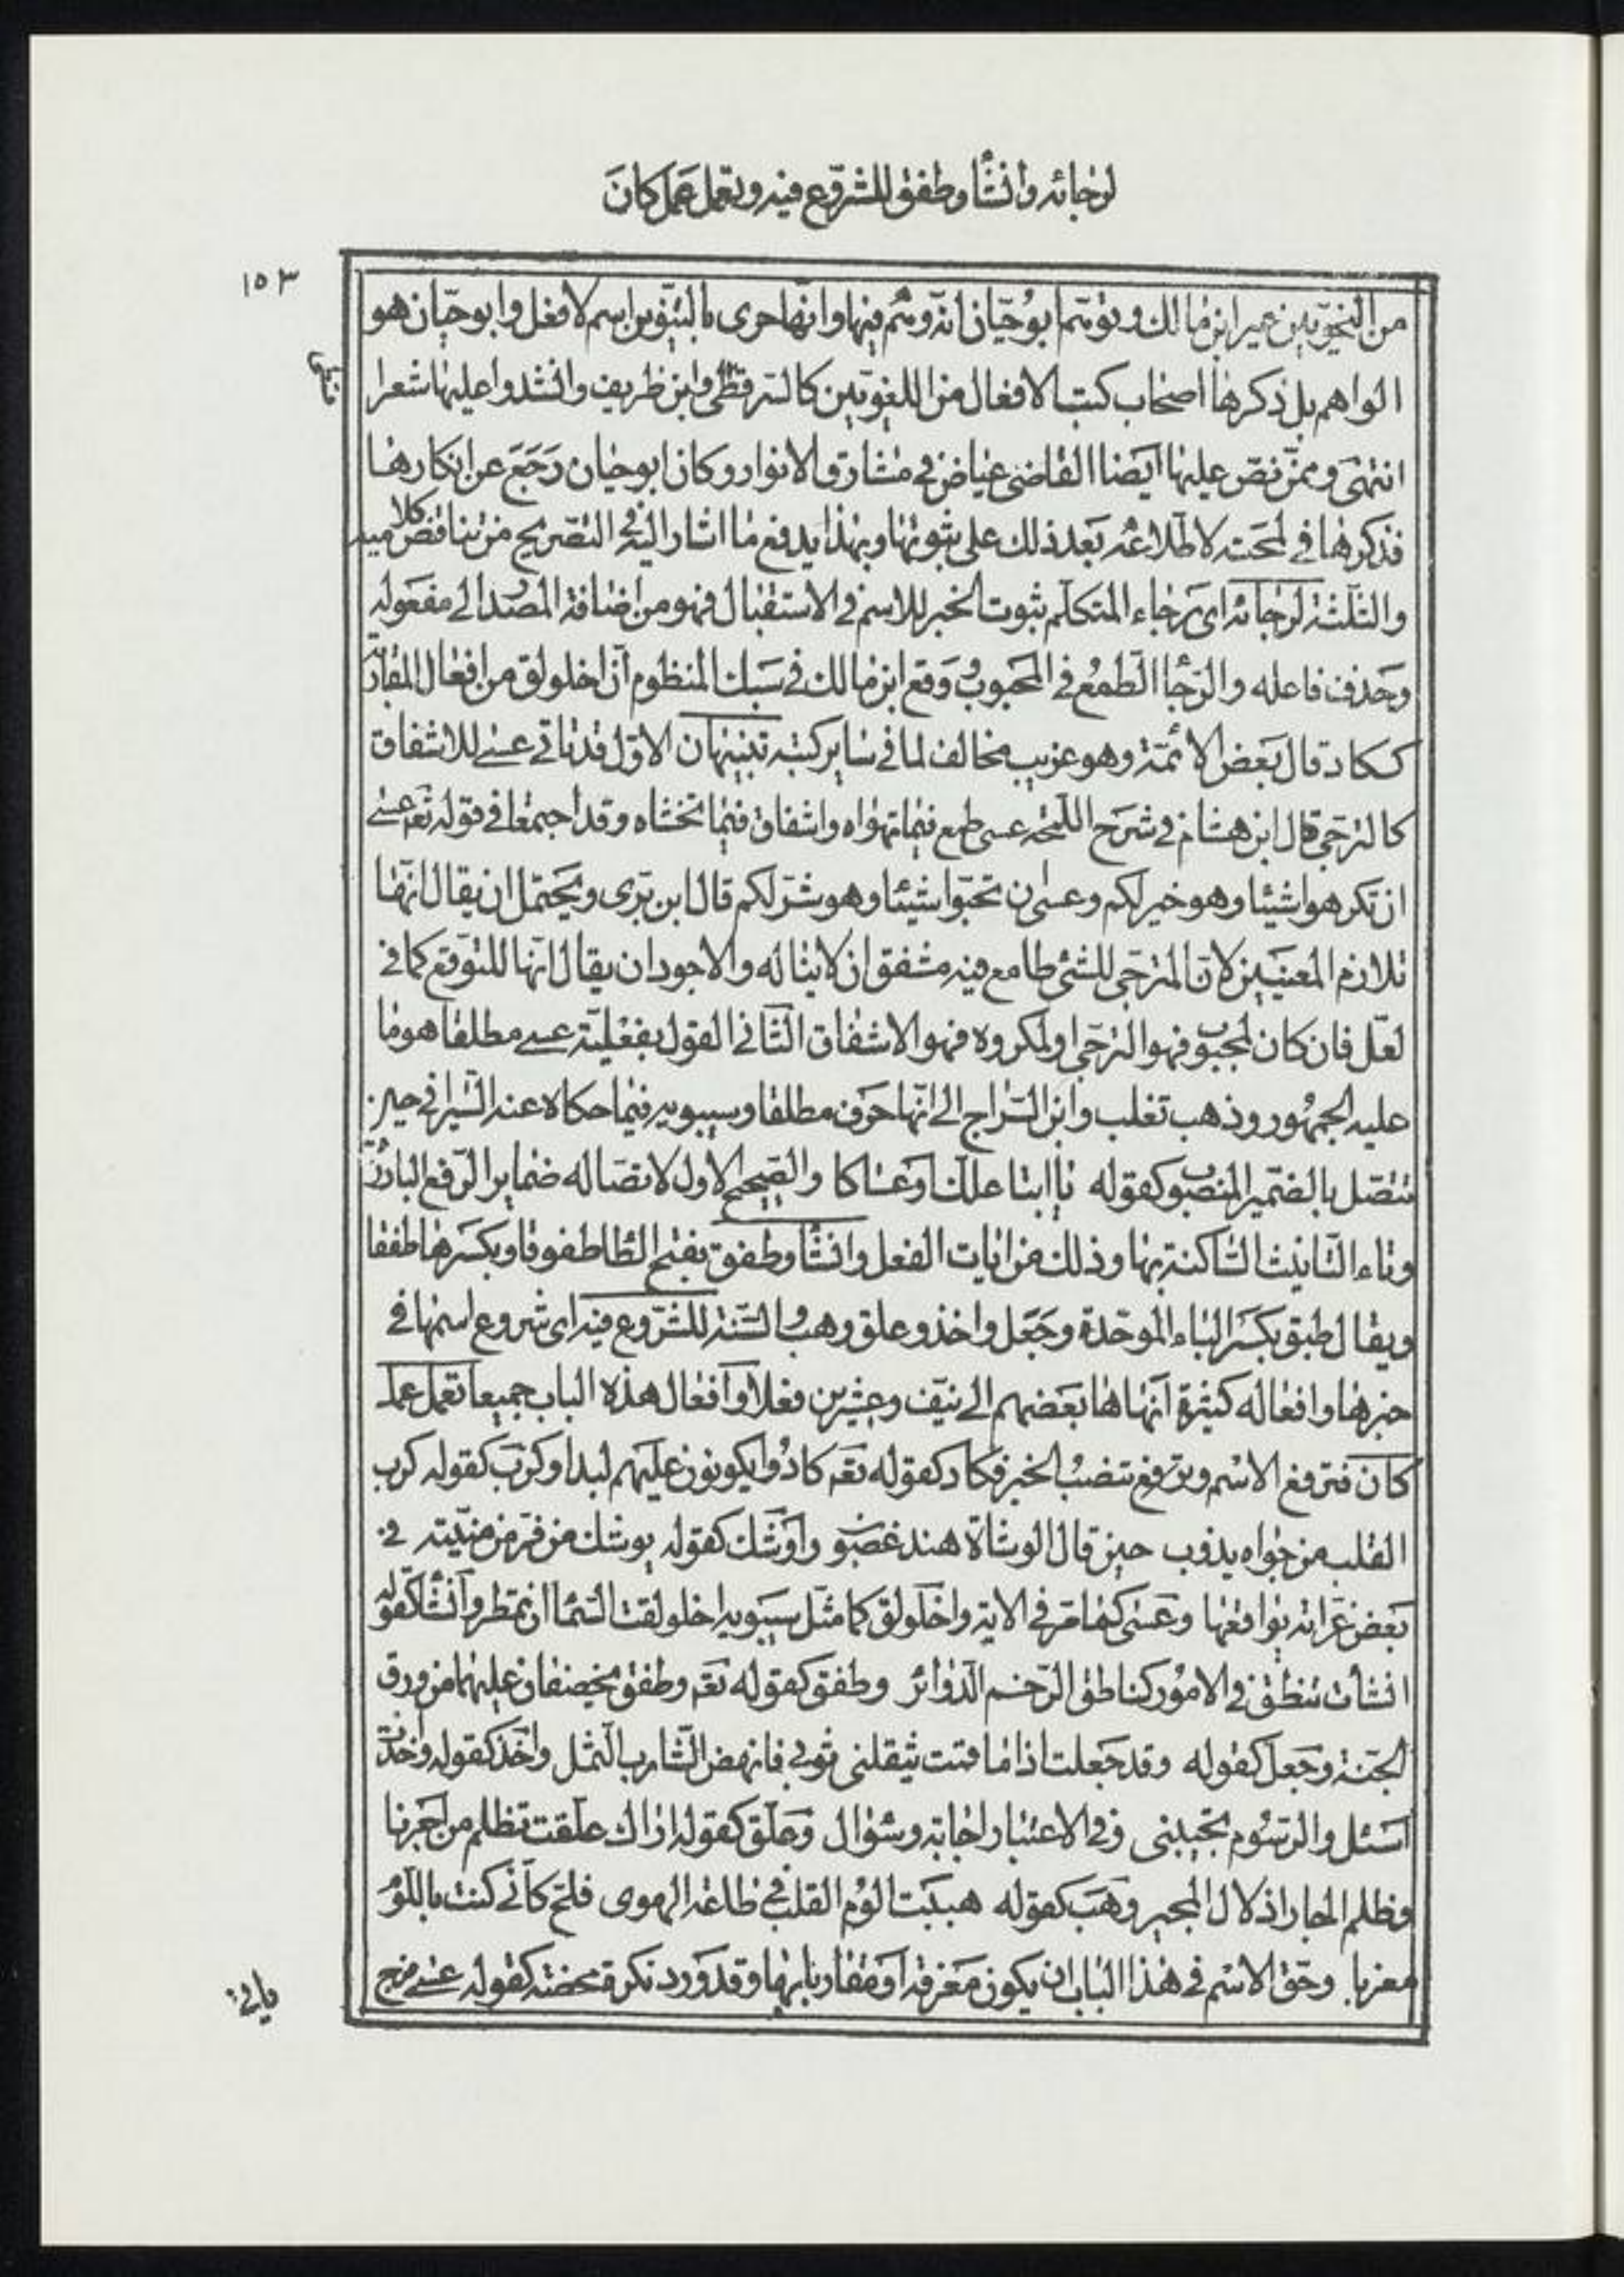 لرجائه وانشأ وطفق للشروع فيه وتعمل عمل كان
١٥٣
من النحويين غير ابن مالك وتوهم ابو حيان انه وهم فيها وانها حرى بالتنوين اسم لا فعل وابو حيان هو
الواهم بل ذكرها اصحاب كتب الافعال من اللغويين كالسرقطى وابن ظريف وانشدوا عليها شعرا
انتهى وممن نص عليها ايضا القاضى عياض فى مشارق الانوار وكان ابو حيان رجع عن انكارها
فذكرها فى لمحته لاطلاعه بعد ذلك على ثبوتها وبهذا يدفع ما اشار اليه فى التصريح من تناقض كلاميه
والثلثة لرجائه اى رجاء المتكلم ثبوت الخبر للاسم فى الاستقبال فهو من اضافة المصدر الى مفعوله
وحذف فاعله والرجا الطمع فى المحبوب ووقع ابن مالك فى سبك المنظوم ان اخلولق من افعال المقاربة
ككاد قال بعض الائمة وهو غريب مخالف لما فى ساير كتبه تنبيهان الاول قد تاتى عسى للاشفاق
كالترجى قال ابن هشام فى شرح اللمحه عسى طمع فيما تهواه واشفاق فيما تخشاه وقد اجتمعا فى قوله تعم عسى
ان تكرهوا شيئا وهو خير لكم وعسى ان تحبوا شيئا وهو شر لكم قال ابن برى ويحتمل ان يقال انها
تلازم المعنيين لان المترجى للشئ طامع فيه مشفق ان لا يناله والاجود ان يقال انها للتوقع كما فى
لعل فان كان لمحبوب فهو الترجى او لمكروه فهو الاشفاق الثانى القول بفعلية عسى مطلقا هو ما
عليه الجمهور وذهب تغلب وابن السراج الى انها حرف مطلقا وسيبويه فيما حكاه عنه السيرافى حين
تتصل بالضمير المنصوب كقوله يا ابتا علك او عساكا والصحيح الاول لاتصاله ضماير الرفع البارزة
وتاء التانيث الساكنة بها وذلك من ايات الفعل وانشأ وطفق بفتح الطا طفوقا وبكسرها طفقا
ويقال طبق بكسر الباء الموحدة وجعل واخذ وعلق وهب والستة للشروع فيه اى شروع اسمها فى
خبرها وافعاله كثيرة انهاها بعضهم الى نيف وعشرين فعلا وافعال هذه الباب جميعا تعمل عمل
كان فترفع الاسم وترفع تنصب الخبر فكاد كقوله تعم كادوا يكونون عليهم لبدا وكرب كقوله كرب
القلب من جواه يذوب حين قال الوشاة هند غضوب واوشك كقوله يوشك من فر من منيته فى
بعض غراته يوافقها وعسى كما مر فى الاية واخلولق كما مثل سيبويه اخلولقت السما ان تمطر وانشأ كقوله
انشأت تنطق فى الامور كناطق الرخم الدوائر وطفق كقوله تعم وطفق يخصفان عليهما من ورق
الجنة وجعل كقوله وقد جعلت اذا ما قمت يثقلنى ثوبى فانهض الشارب الثمل واخذ كقوله واخذت
اسئل والرسوم تجيبنى وفى الاعتبار اجابة وسؤال وعلق كقوله اراك علقت تظلم من اجرنا
وظلم الجار اذلال المجير وهب كقوله هببت الوم القلب فى طاعة الهوى فلج كأنى كنت باللوم
مغريا وحق الاسم فى هذا الباب ان يكون معرفة او مقاربا بها وقد ورد نكرة محضة كقوله عسى فرج
ياتى